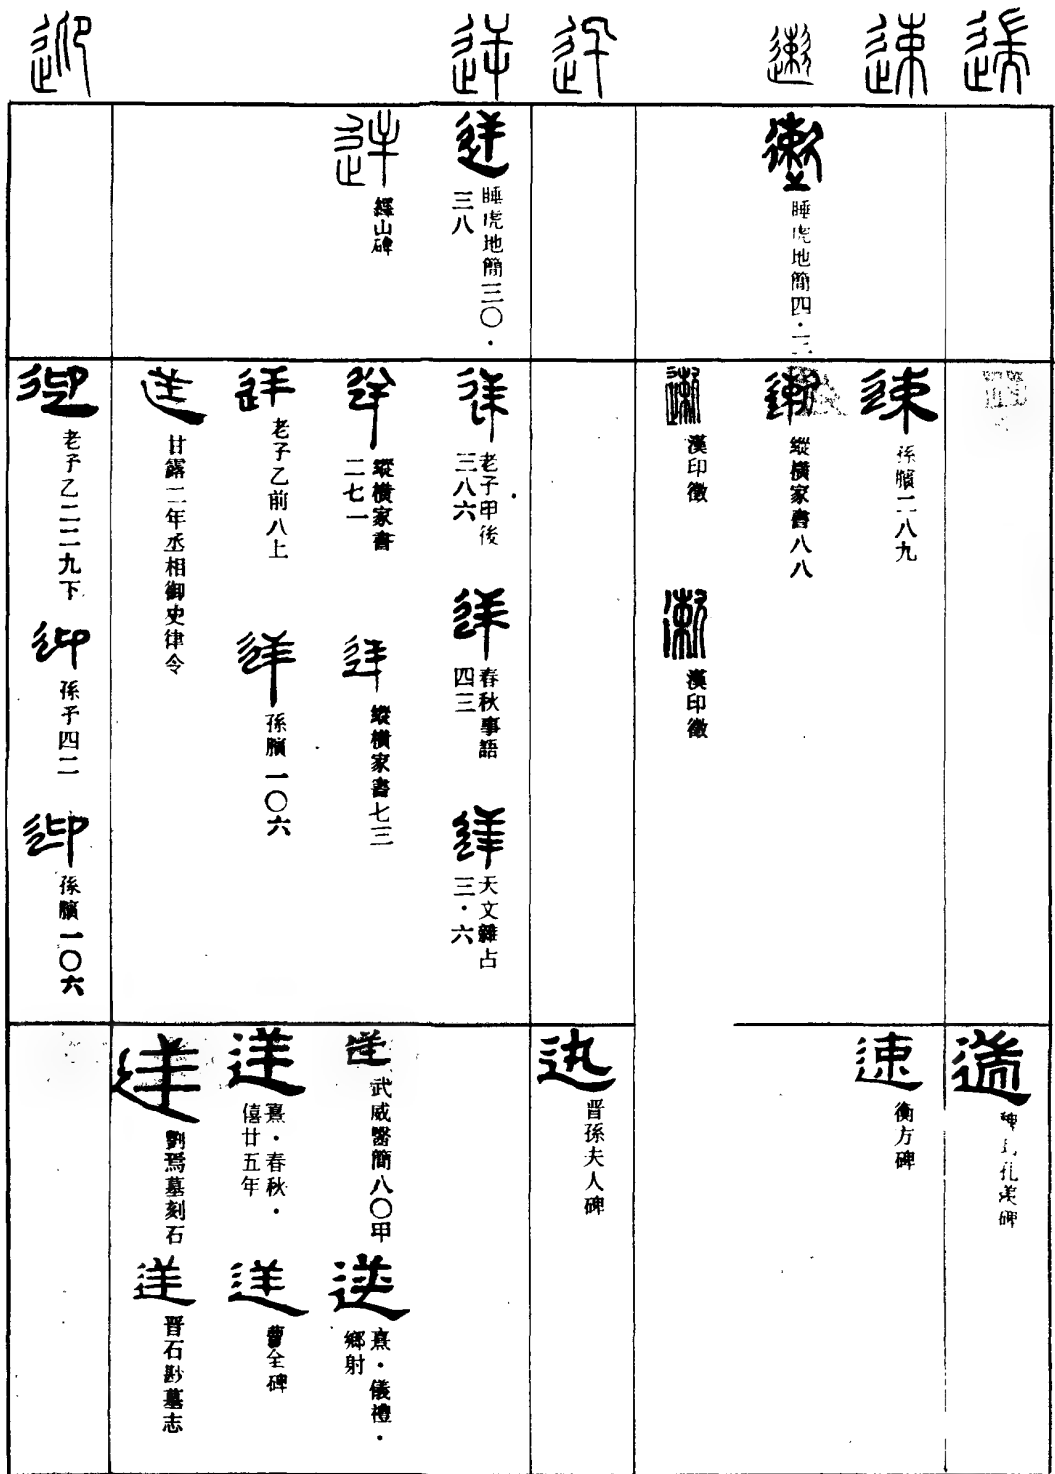 適
速
遬
迅
逆
迎
睡虎地簡四·
睡虎地簡三〇·
三八
繹山碑
孫臏二八九
縱橫家書八八
漢印徵
漢印徵
老子甲後
三八六
春秋事語
四三
天文雜占
三·六
縱橫家書
二七一
縱橫家書七三
老子乙前八上
孫臏一〇六
甘露二年丞相御史律令
老子乙二二九下
孫子四二
孫臏一〇六
適
魏 孔羡碑
速
衡方碑
迅
晋孫夫人碑
逆
武威醫簡八〇甲
逆
熹·儀禮·
鄉射
逆
熹·春秋·
僖廿五年
逆
曹全碑
逆
劉焉墓刻石
逆
晋石尠墓志